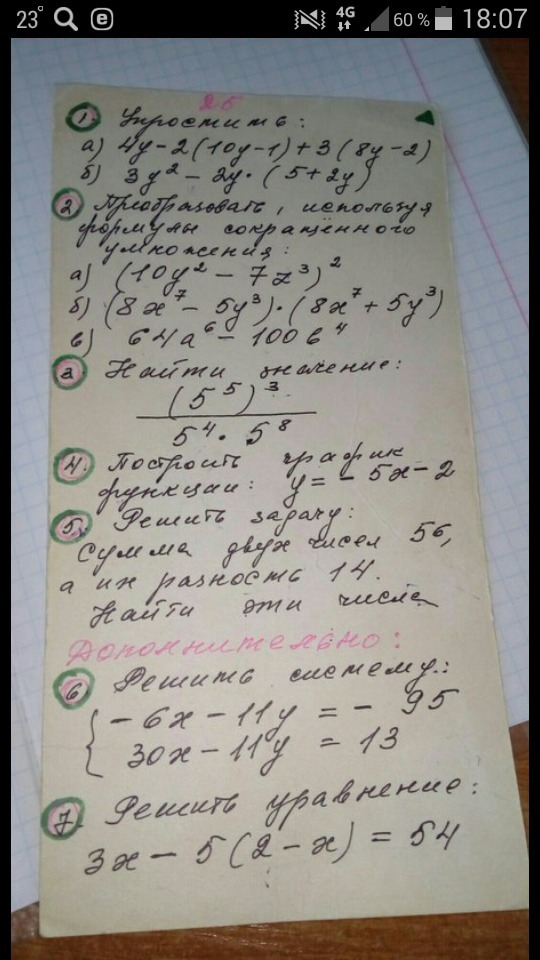 23°
4G
60 %
18:07
25
1. Упростить:
а) 4y-2(10y-1)+3(8y-2)
б) 3y² - 2y·(5+2y)
2 Преобразовать, используя
формулы сокращённого
умножения:
а) (10y² - 7z³)²
б) (8x⁷ - 5y³)·(8x⁷ + 5y³)
в) 64a⁶ - 100b⁴
3 Найти значение:
(5⁵)³
5⁴ · 5⁸
4. Построить график
функции: y = - 5x - 2
5. Решить задачу:
Сумма двух чисел 56,
а их разность 14.
Найти эти числа
Дополнительно:
6 Решить систему:
{ - 6x - 11y = - 95
30x - 11y = 13
7. Решить уравнение:
3x - 5(2-x) = 54